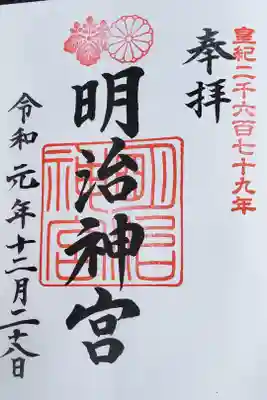 皇紀二千六百七十九年
奉拝
明治神宮
明治
神宮
令和元年十二月二十八日